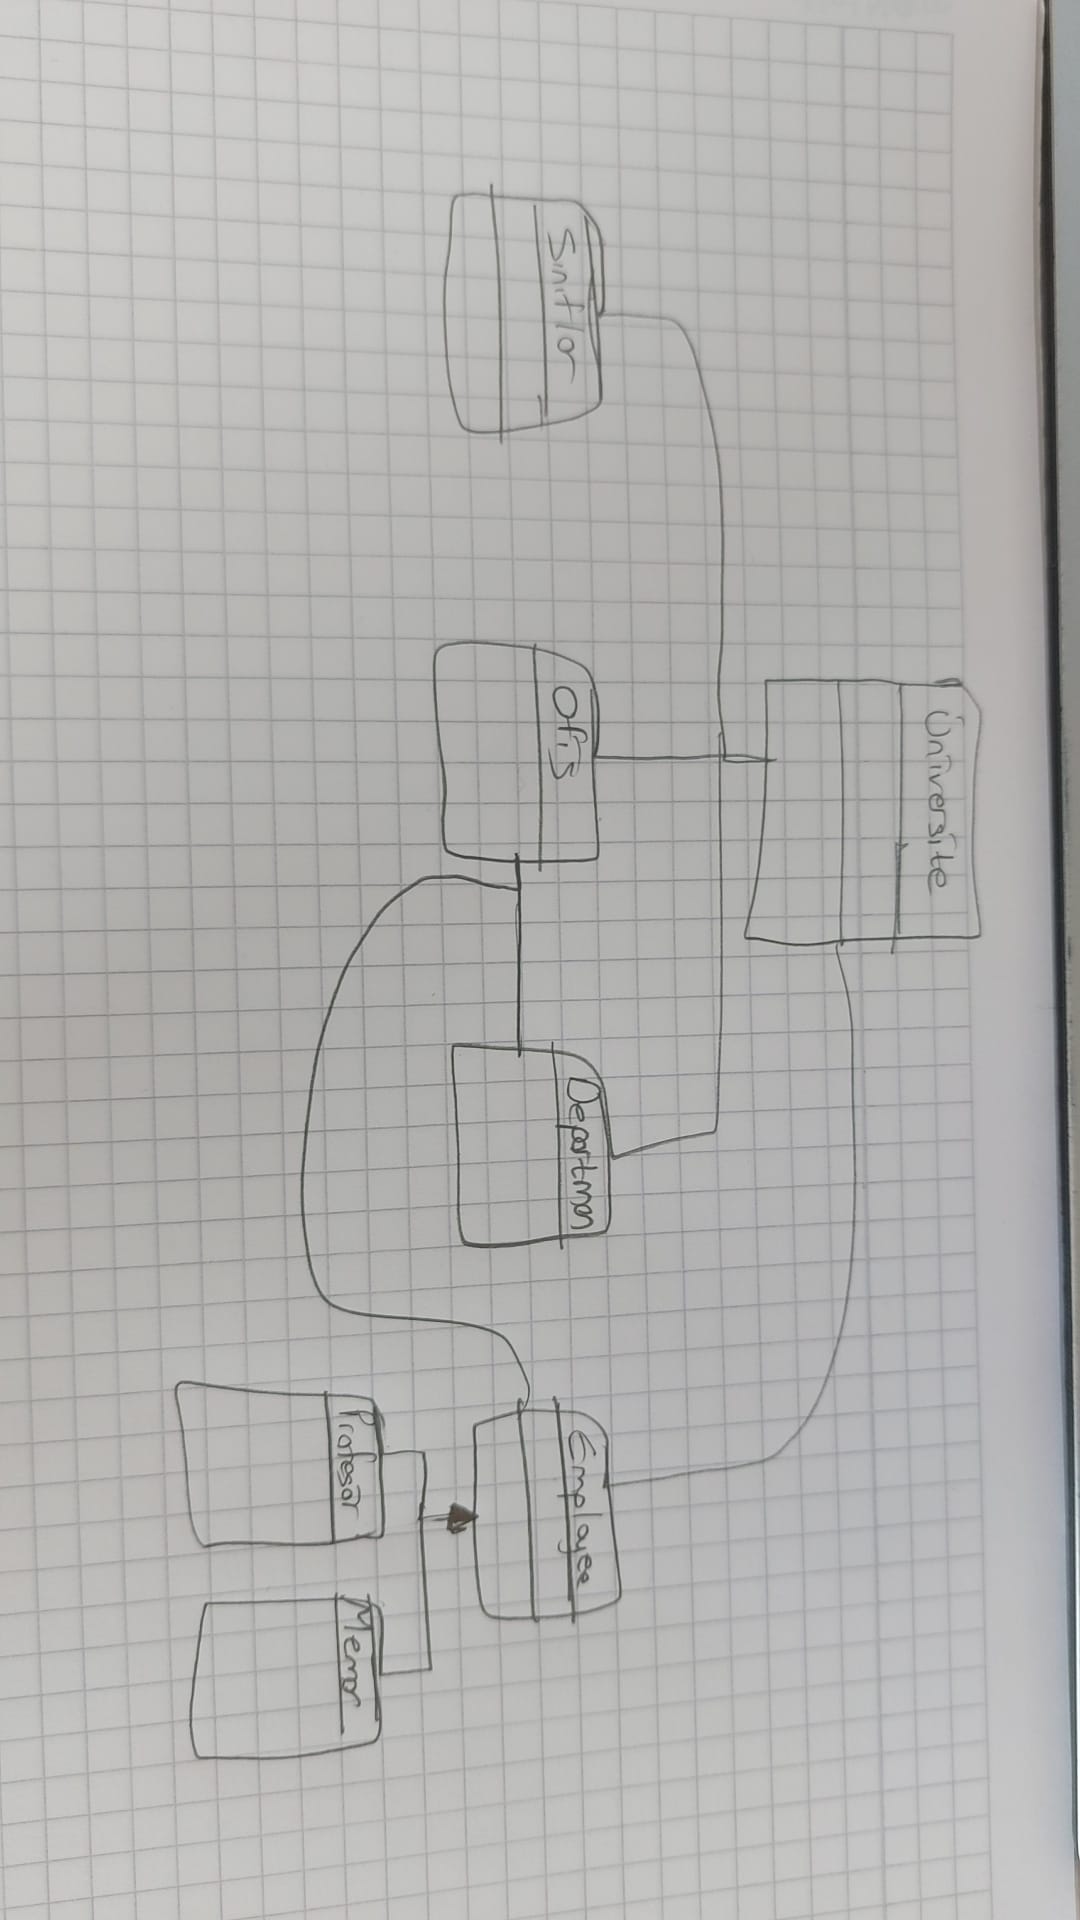 Üniversite
Sınıflar
Ofis
Departman
Employee
Profesör
Memor